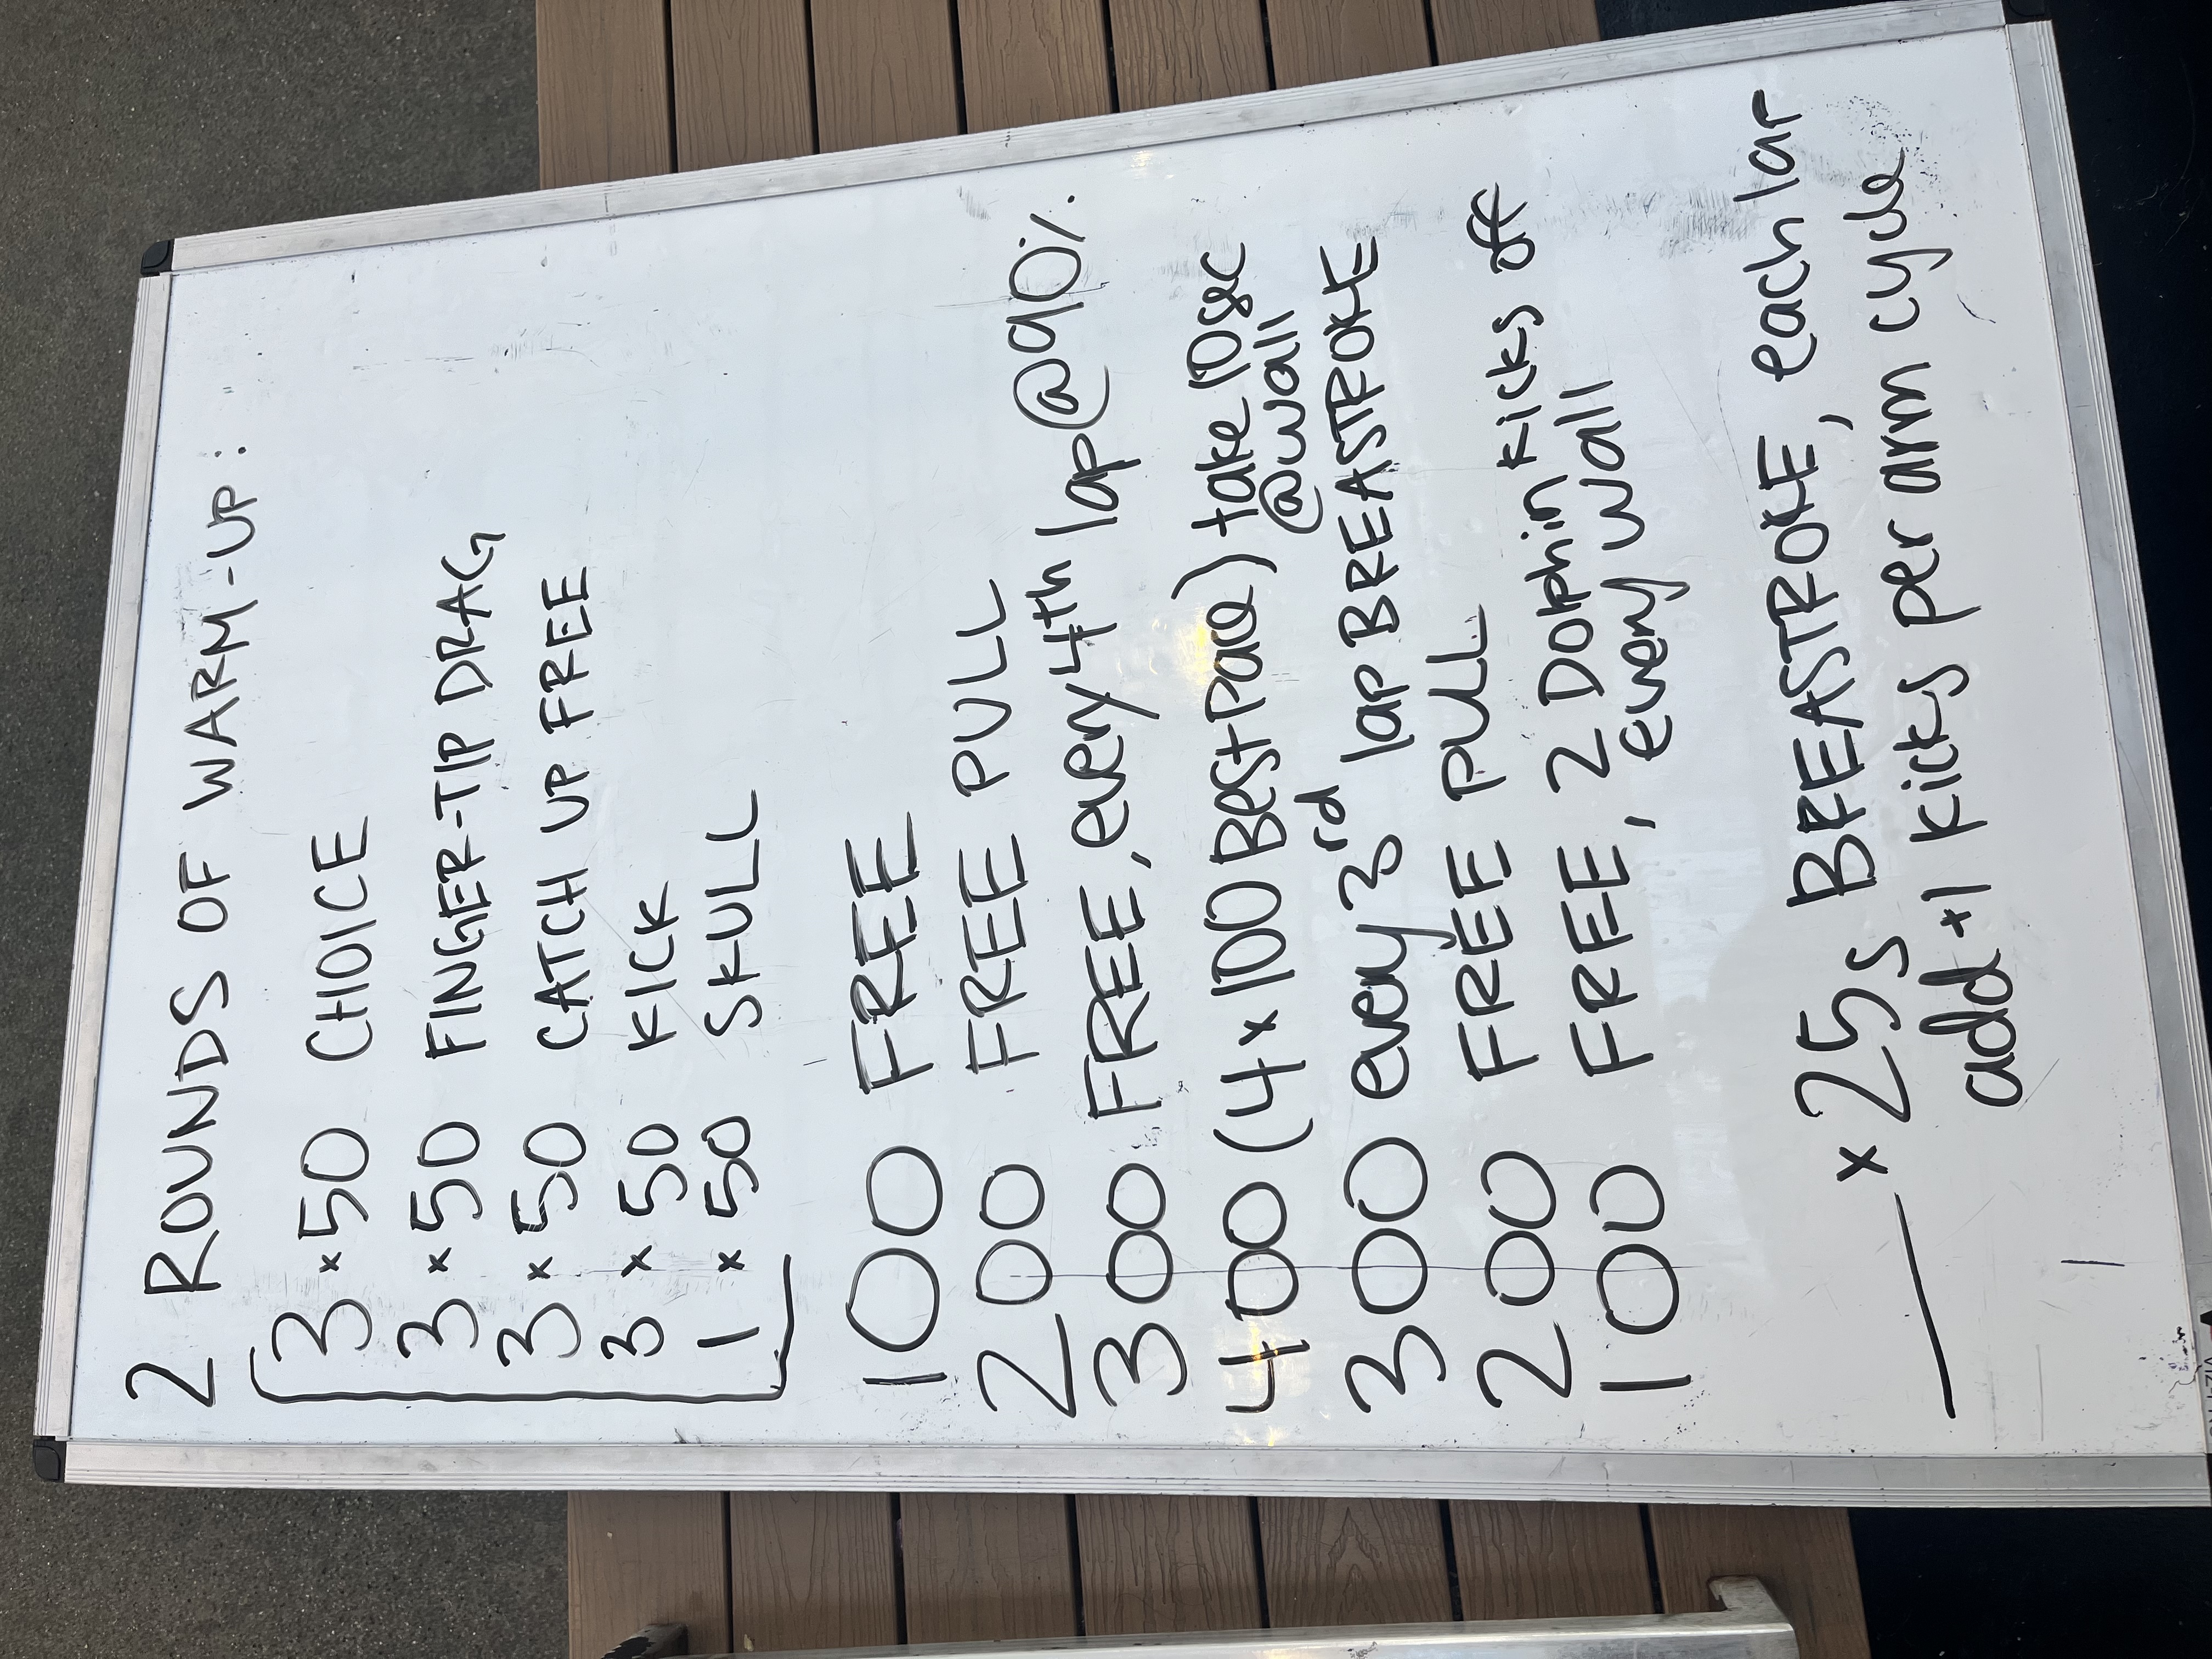 2 ROUNDS OF WARM-UP:
3 x 50 CHOICE
3 x 50 FINGER-TIP DRAG
3 x 50 CATCH UP FREE
3 x 50 KICK
1 x 50 SKULL
100 FREE
200 FREE PULL
300 FREE, every 4th lap @ 90%
400 (4 x 100 Best Pace) take 10sec
@wall
300 every 3rd lap BREASTROKE
200 FREE PULL
100 FREE, 2 Dolphin kicks off
every wall
___ x 25s BREASTROKE, each lap
add +1 kicks per arm cycle